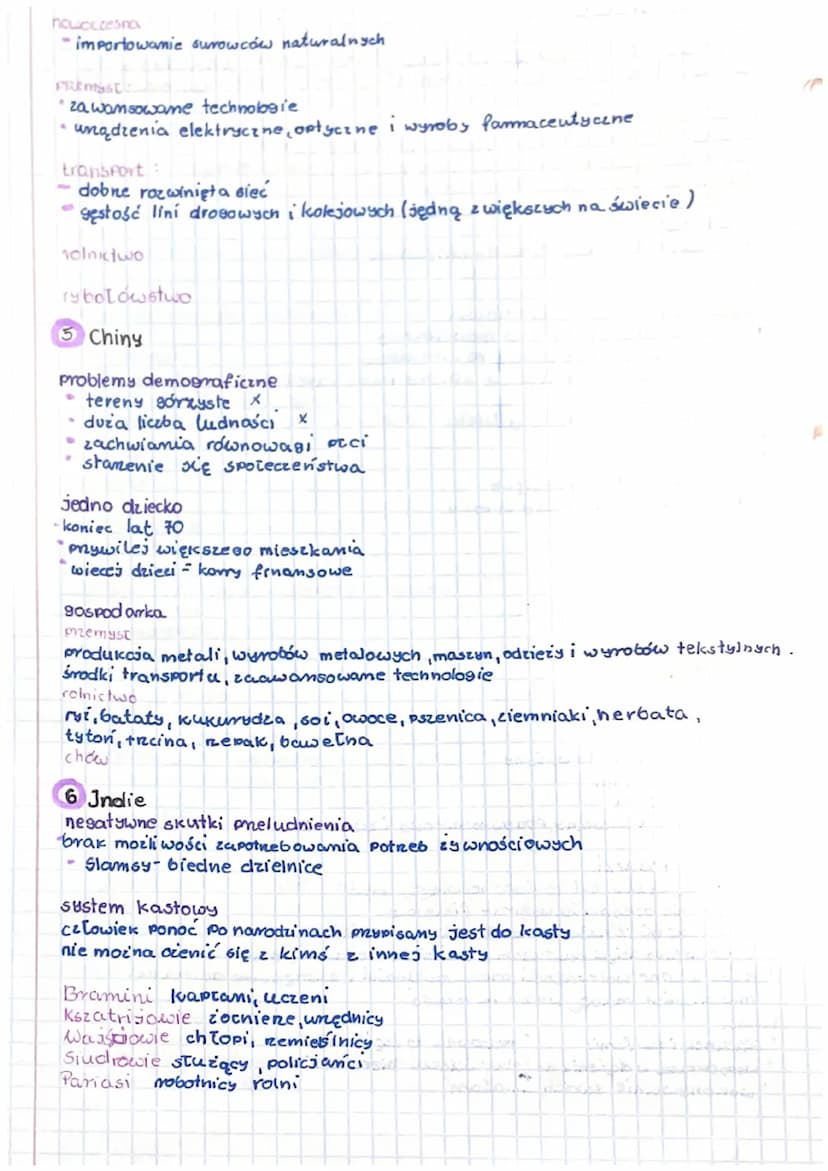 nowoczesna
- importowanie surowców naturalnych
przemysł:
• zawansowane technologie
• urządzenia elektryczne, optyczne i wyroby farmaceutyczne
transport:
- dobrze rozwinięta sieć
- gęstość lini drogowych i kolejowych (jedną z większych na świecie)
rolnictwo
rybołówstwo
5 Chiny
problemy demograficzne
• tereny górzyste x
• duża liczba ludności x
• zachwiania równowagi płci
• starzenie się społeczeństwa
jedno dziecko
- koniec lat 70
• przywilej większego mieszkania
• więcej dzieci = karry finansowe
gospodarka
przemysł
produkcja metali, wyrobów metalowych, maszyn, odzieży i wyrobów tekstylnych.
środki transportu, zaawansowane technologie
rolnictwo
ryż, bataty, kukurydza, soi, owoce, pszenica, ziemniaki, herbata,
tytoń, trzcina, rzepak, bawełna
chów
6 Indie
negatywne skutki przeludnienia
- brak możliwości zapotrzebowania potrzeb żywnościowych
- slamsy - biedne dzielnice
system kastowy
człowiek ponoć po narodzinach przypisany jest do kasty
nie można ożenić się z kimś z innej kasty
Bramini kapłani, uczeni
Kszatrijowie żołnierze, urzędnicy
Wajsjowie chłopi, rzemieślnicy
Siudrowie służący, policjańci
Pariasi robotnicy rolni